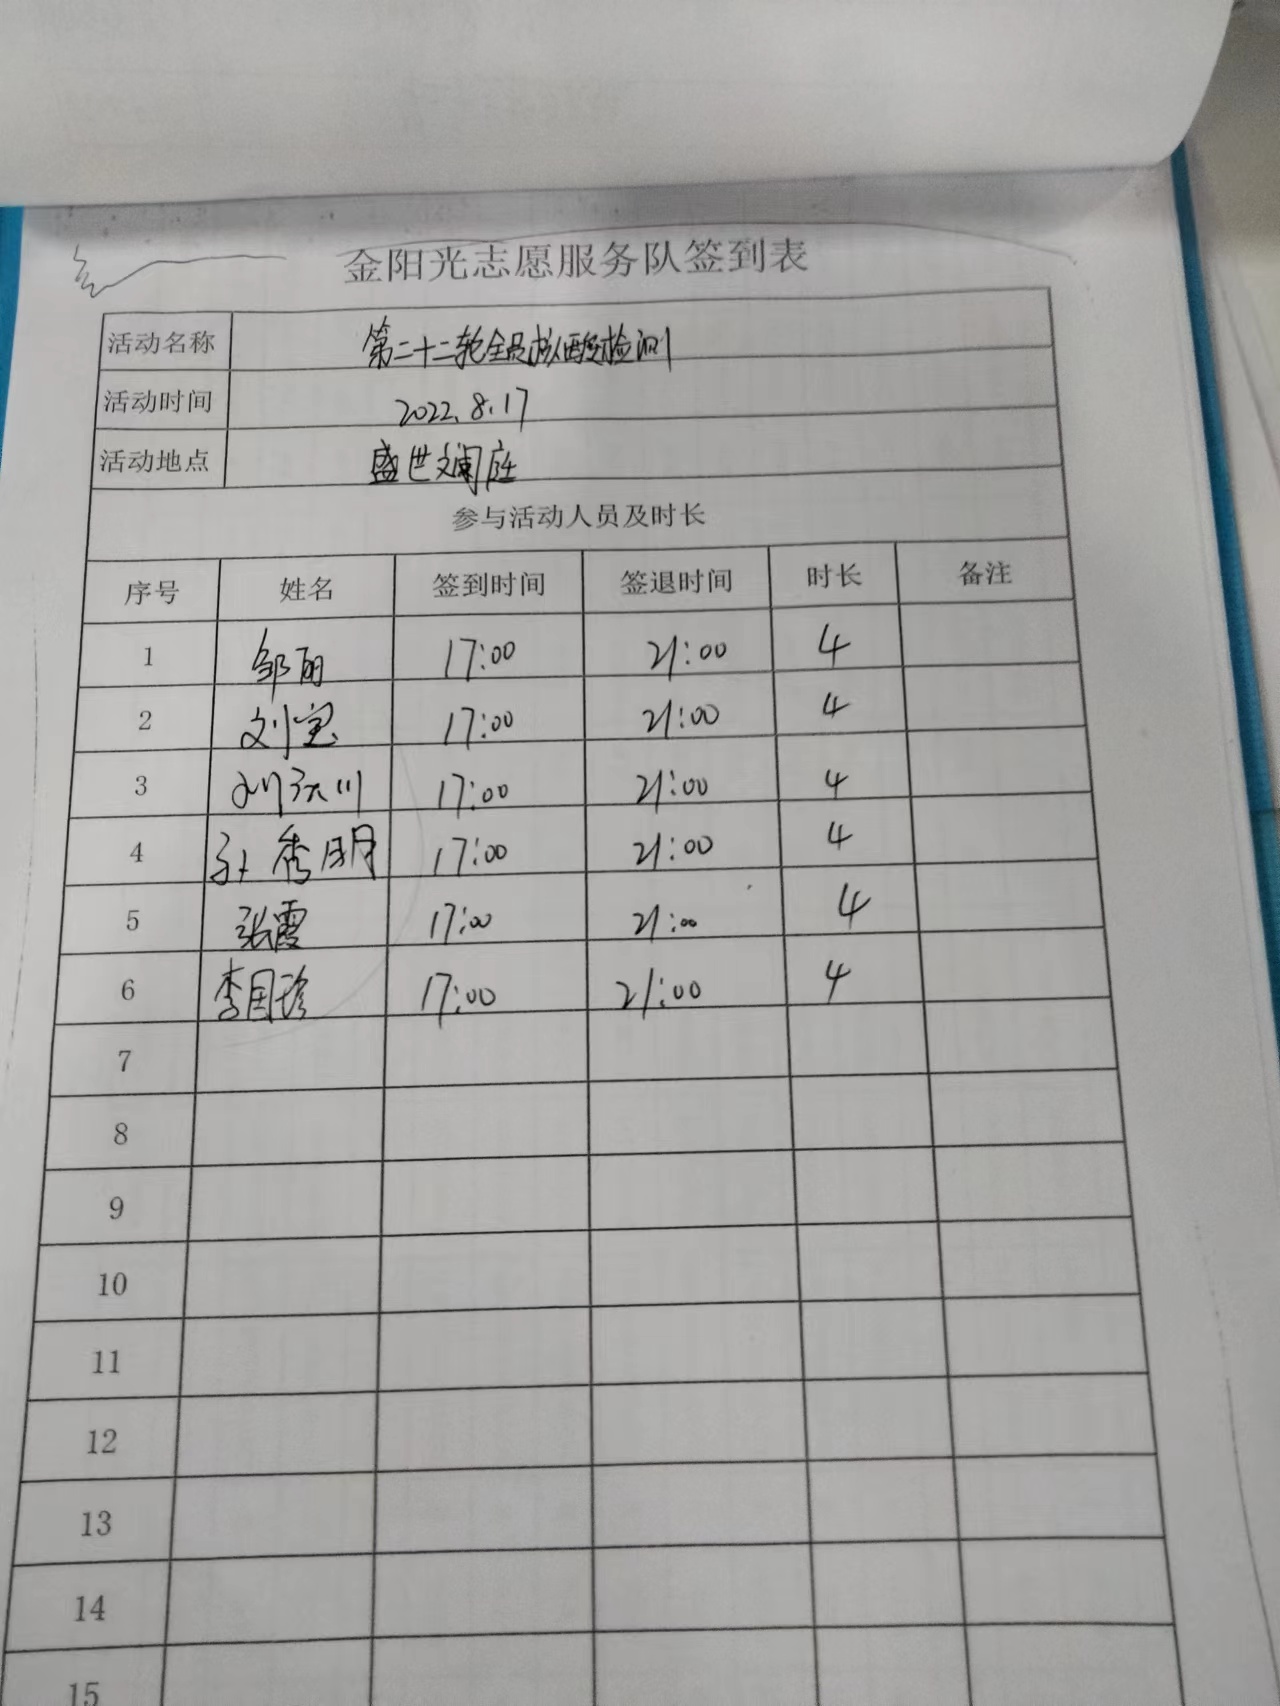 金阳光志愿服务队签到表
活动名称 第二十二轮全员核酸检测
活动时间 2022.8.17
活动地点 盛世澜庭
参与活动人员及时长
序号 姓名 签到时间 签退时间 时长 备注
1 邹丽 17:00 21:00 4
2 刘宝 17:00 21:00 4
3 刘 川 17:00 21:00 4
4 孙秀明 17:00 21:00 4
5 张霞 17:00 21:00 4
6 李国珍 17:00 21:00 4
7
8
9
10
11
12
13
14
15